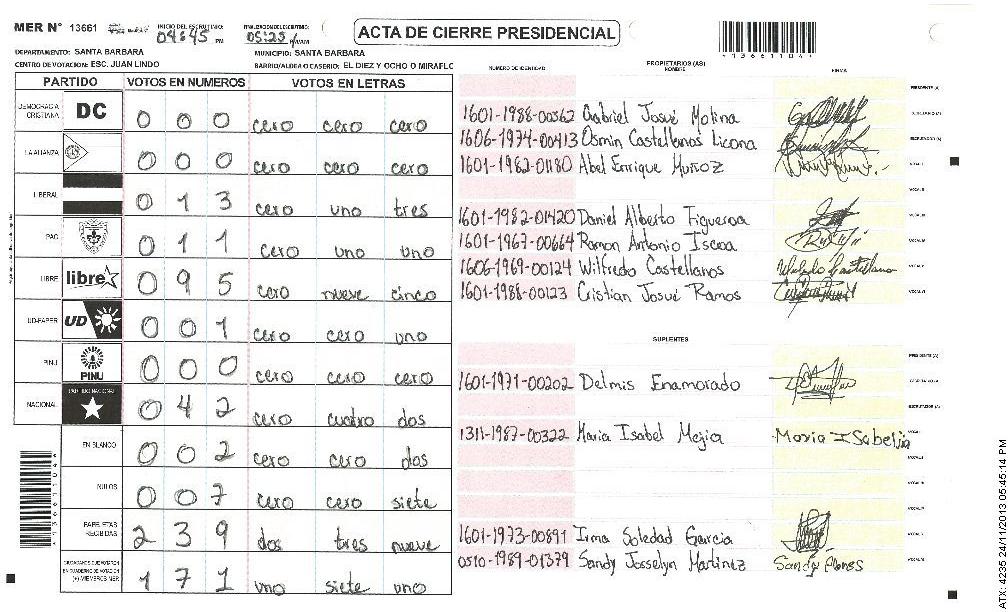 MER N° 13661 INICIO DEL ESCRUTINIO: 04:45 PM FINALIZACION DEL ESCRUTINIO: 05:25
ACTA DE CIERRE PRESIDENCIAL
*13661104*
DEPARTAMENTO: SANTA BARBARA MUNICIPIO: SANTA BARBARA
CENTRO DE VOTACION: ESC. JUAN LINDO BARRIO/ALDEA O CASERIO: EL DIEZ Y OCHO O MIRAFLO
PARTIDO VOTOS EN NUMEROS VOTOS EN LETRAS
DEMOCRACIA CRISTIANA DC 0 0 0 cero cero cero
LA ALIANZA 0 0 0 cero cero cero
LIBERAL 0 1 3 cero uno tres
PAC 0 1 1 cero uno uno
LIBRE libre 0 9 5 cero nueve cinco
UD-FAPER UD 0 0 1 cero cero uno
PINU PINU 0 0 0 cero cero cero
NACIONAL PARTIDO NACIONAL 0 4 2 cero cuatro dos
EN BLANCO 0 0 2 cero cero dos
NULOS 0 0 7 cero cero siete
PAPELETAS RECIBIDAS 2 3 9 dos tres nueve
CIUDADANOS QUE VOTARON EN CUADERNO DE VOTACION (+) MIEMBROS MER 1 7 1 uno siete uno
NUMERO DE IDENTIDAD PROPIETARIOS (AS) NOMBRE FIRMA
PRESIDENTE (A)
1601-1988-00562 Gabriel Josué Molina SECRETARIO (A)
1606-1974-00413 Osmin Castellanos Licona ESCRUTADOR (A)
1601-1962-01180 Abel Enrique Muñoz VOCAL I
VOCAL II
1601-1982-01420 Daniel Alberto Figueroa VOCAL III
1601-1967-00664 Ramon Antonio Iscoa VOCAL IV
1606-1969-00124 Wilfredo Castellanos Wilfredo Castellanos VOCAL V
1601-1988-00123 Cristian Josué Ramos VOCAL VI
SUPLENTES
PRESIDENTE (A)
1601-1971-00202 Delmis Enamorado SECRETARIO (A)
ESCRUTADOR (A)
1311-1987-00322 Maria Isabel Mejia Maria Isabel VOCAL I
VOCAL II
VOCAL III
VOCAL IV
1601-1973-00891 Irma Soledad Garcia VOCAL V
0510-1989-01379 Sandy Josselyn Martinez Sandy Flores VOCAL VI
*13661104*
ATX: 4235 24/11/2013 05:45:14 PM